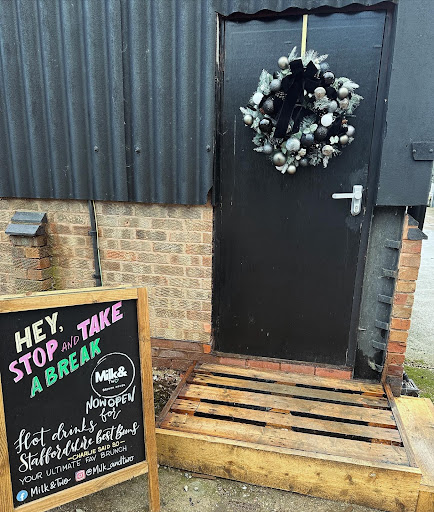 HEY,
STOP AND TAKE
A BREAK
Milk&
TWO
NOW OPEN
for
Hot drinks
Staffordshire Best Buns
—CHARLIE SAID SO—
YOUR ULTIMATE FAV BRUNCH
Milk&Two @Milk_andtwo